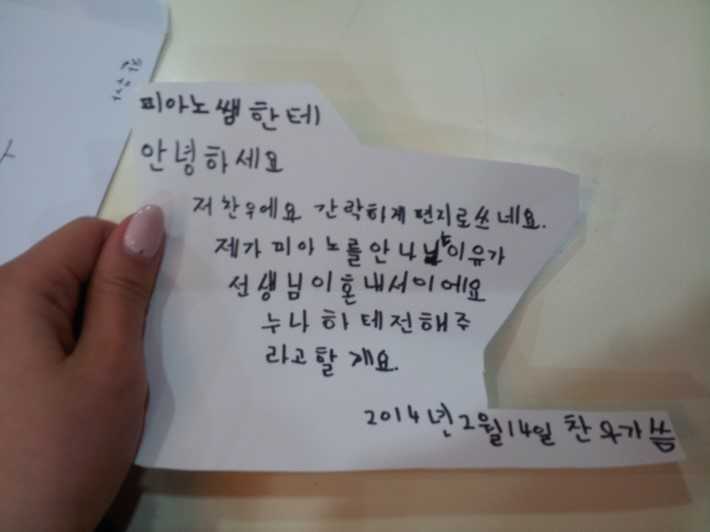 피아노쌤한테
안녕하세요
저찬우에요 간락하게 편지로쓰네요.
제가 피아노를안나난이유가
선생님이혼내서이에요
누나하테전해주
라고할게요.
2014년2월14일 찬우가씀